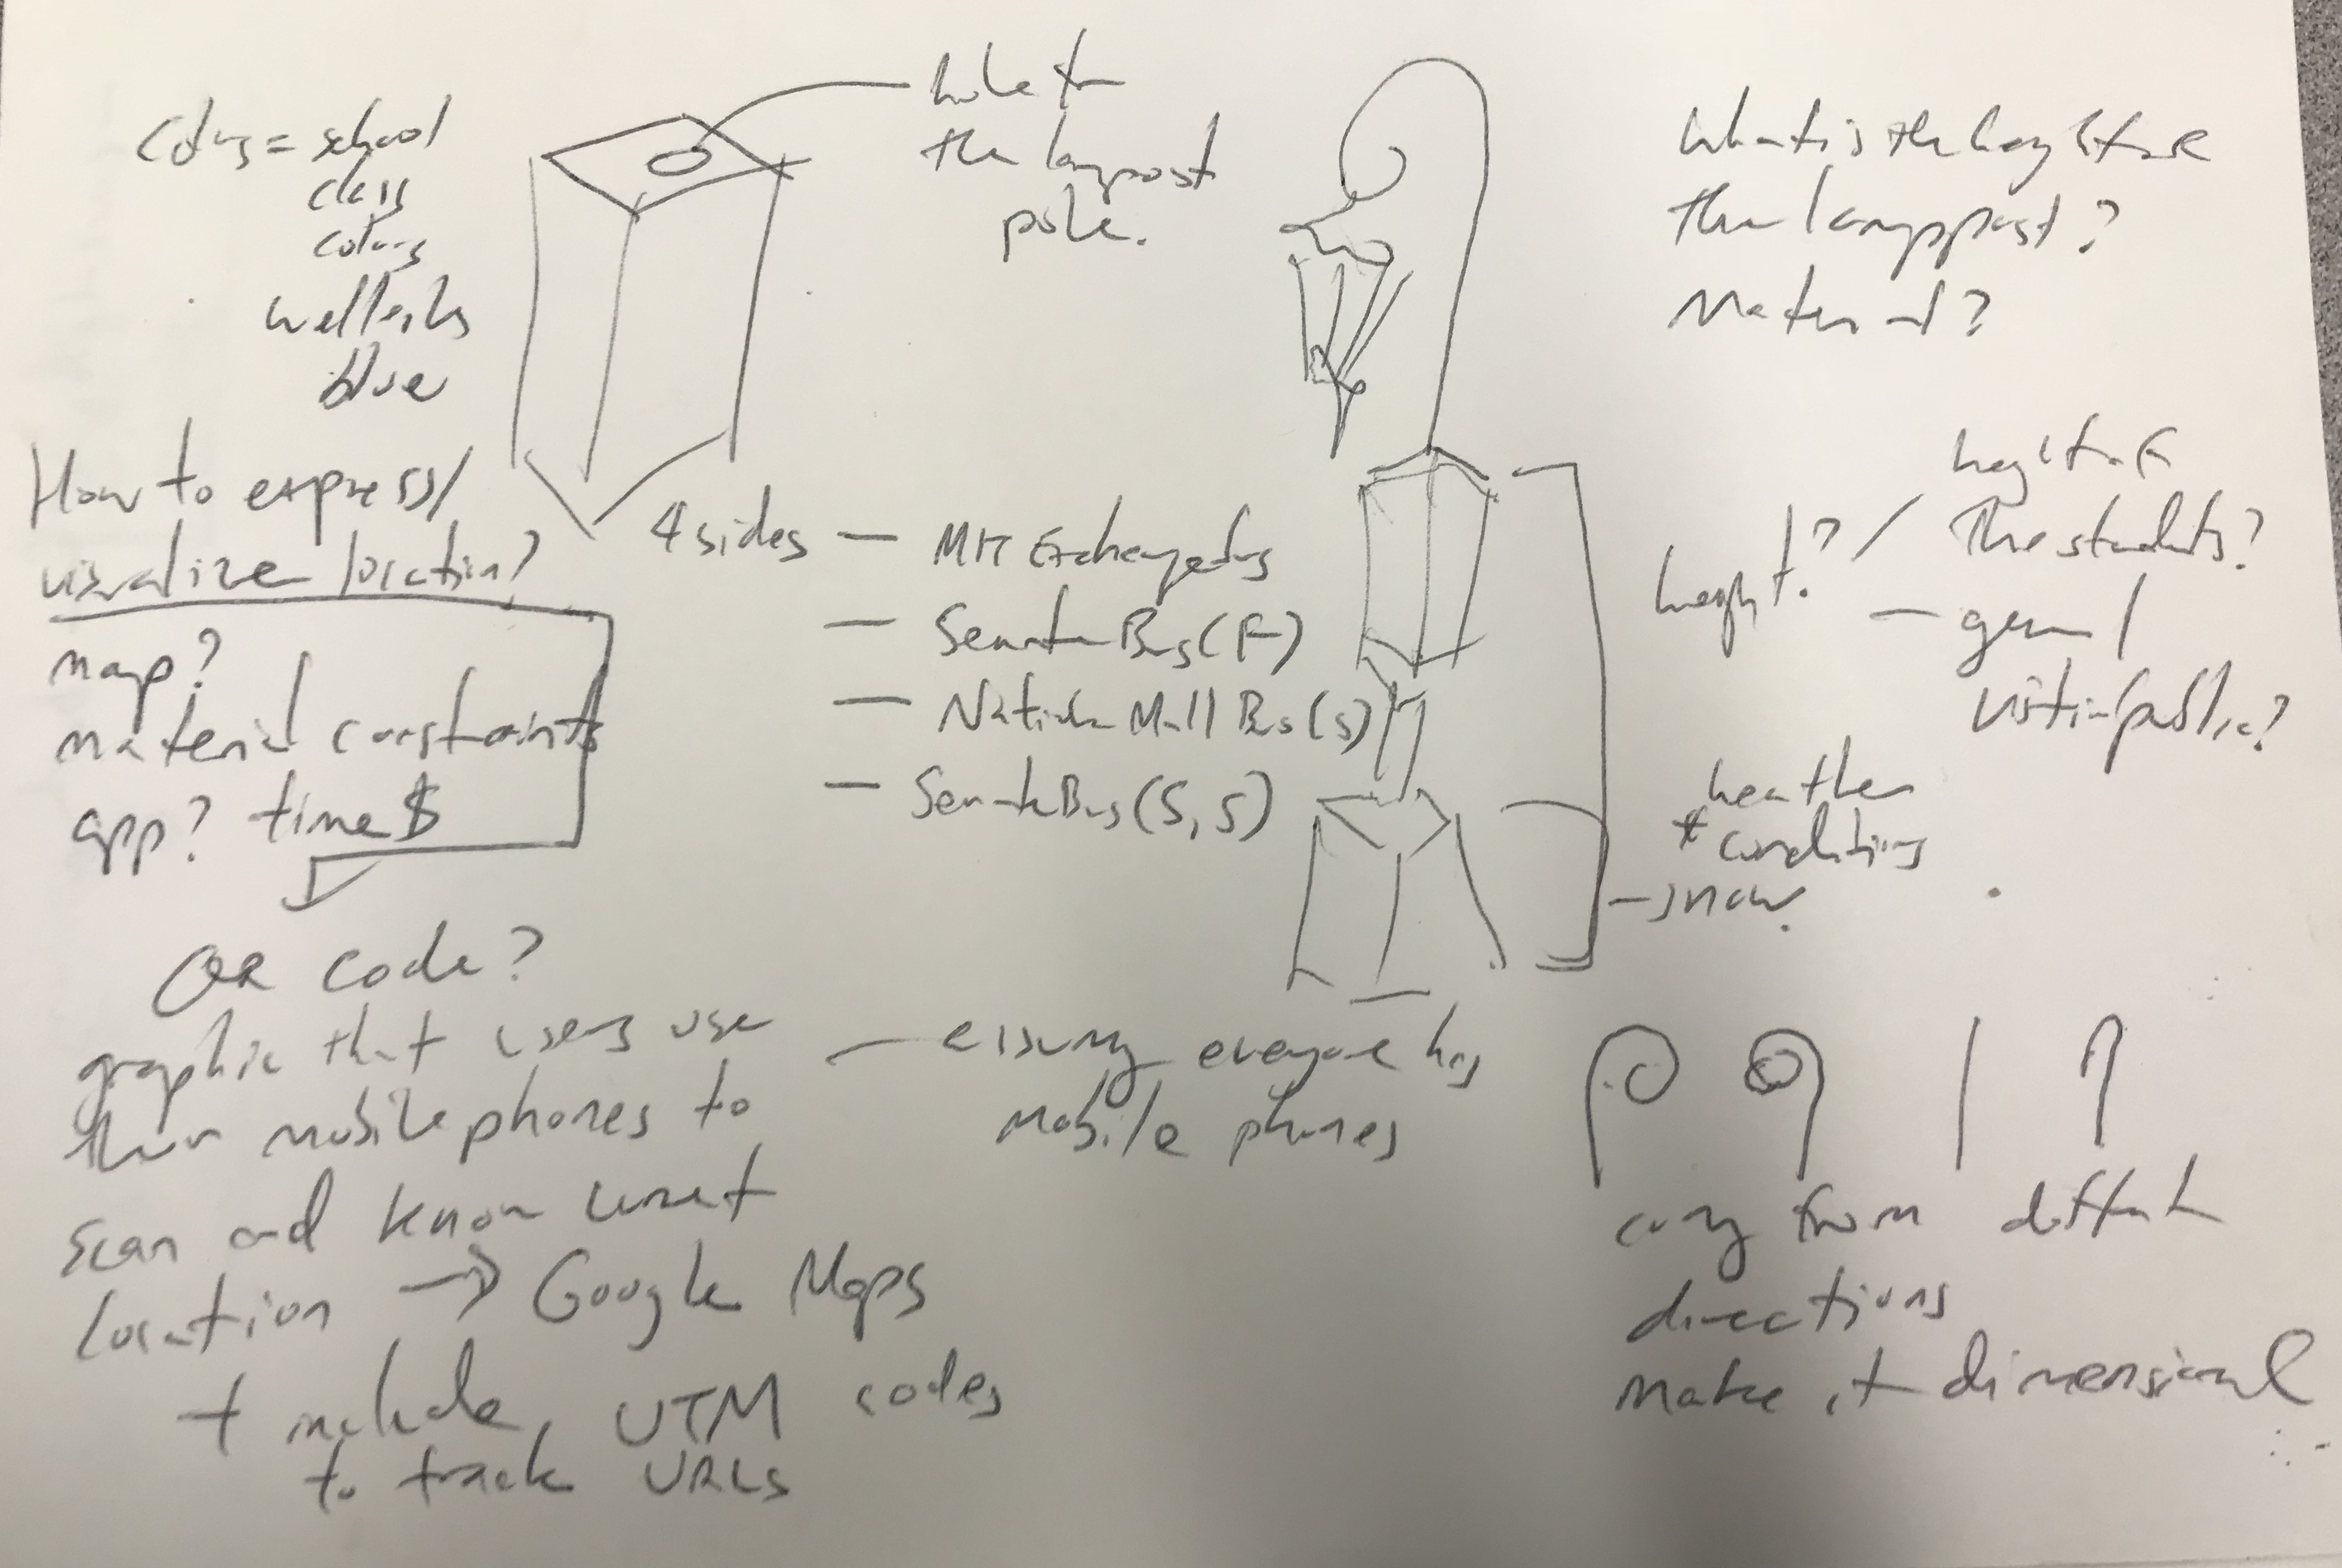 Colors = school
class
colors
wellesley
blue
hole for
the lampost
pole.
What is the height of
the lamppost?
Material?
How to express/
visualize location?
map?
material constraints
app? time $
4 sides — MIT Exchange bus
— Senate Bus (F)
— Natick Mall Bus (S)
— Senate Bus (S, S)
height? / height of
the students?
— general
visitin/public?
* weather
conditions
— snow.
QR code?
graphic that users use
their mobile phones to
scan and know what
location → Google Maps
+ include UTM codes
to track URLs
— assuming everyone has
mobile phones
from different
directions
make it dimensional